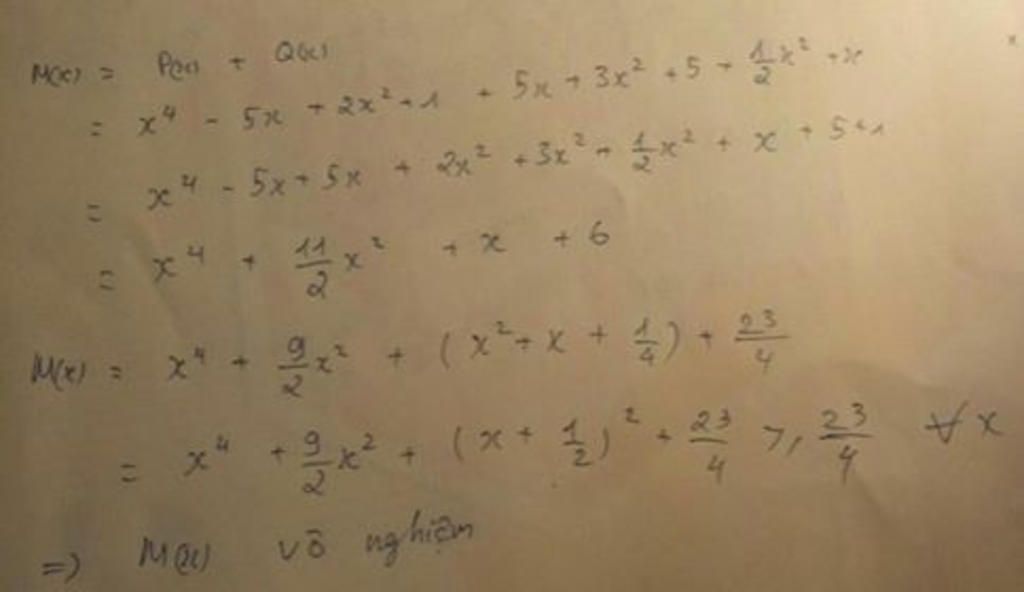 M(x) = P(x) + Q(x)
= x⁴ - 5x + 2x² + 1 + 5x + 3x² + 5 + 1/2 x² + x
= x⁴ - 5x + 5x + 2x² + 3x² + 1/2 x² + x + 5 + 1
= x⁴ + 11/2 x² + x + 6
M(x) = x⁴ + 9/2 x² + (x² + x + 1/4) + 23/4
= x⁴ + 9/2 x² + (x + 1/2)² + 23/4 ≥ 23/4 ∀ x
=) M(x) vô nghiệm